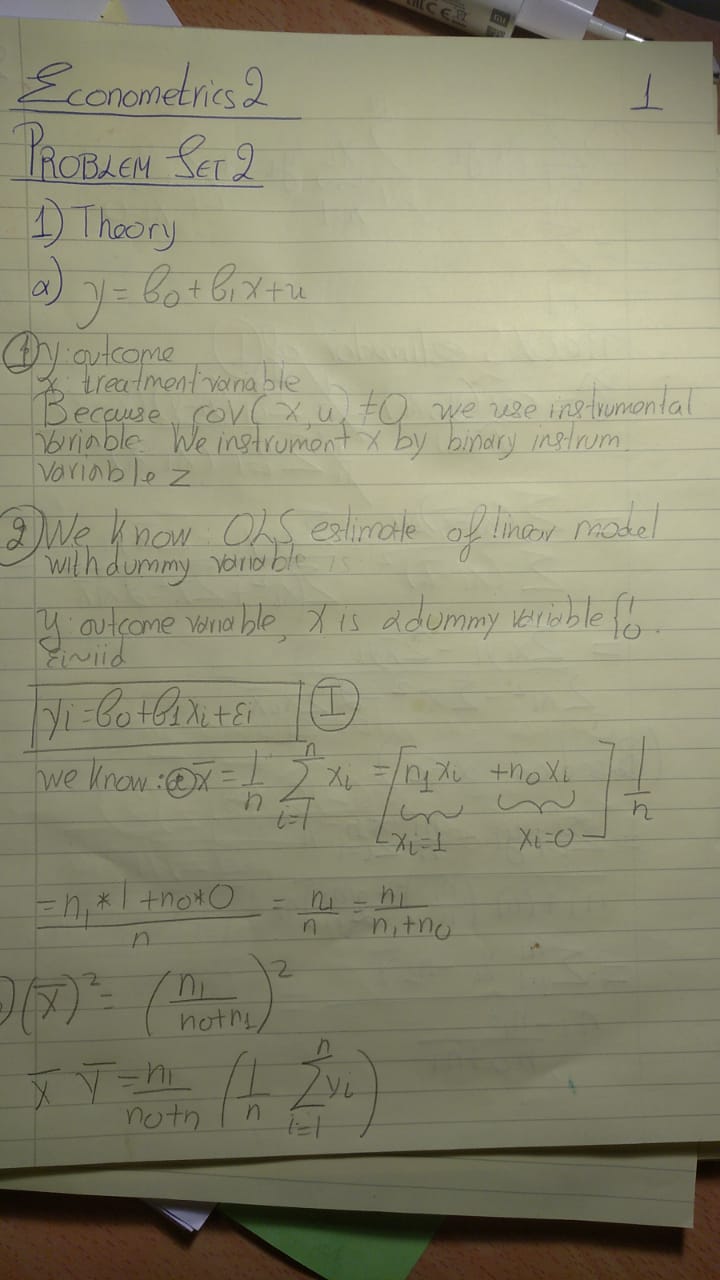 Econometrics 2 1
PROBLEM SET 2
1) Theory
a) y = β0 + β1x + u
① y: outcome
x: treatment variable
Because cov(x,u) ≠ 0 we use instrumental
variable. We instrument x by binary instrum.
variable z
② We know OLS estimate of linear model
with dummy variable is
y: outcome variable, x is a dummy variable {1 0.
εi~iid
yi = β0 + β1xi + εi Ⓘ
we know: ⓐ x̄ = 1/n Σ_{i=1}^{n} xi = [n1xi + n0xi] 1/n
xi=1 xi=0
= (n1*1 + n0*0)/n = n1/n = n1/(n1+n0)
(x̄)² = (n1/(n0+n1))²
x̄ ȳ = n1/(n0+n) (1/n Σ_{i=1}^{n} yi)